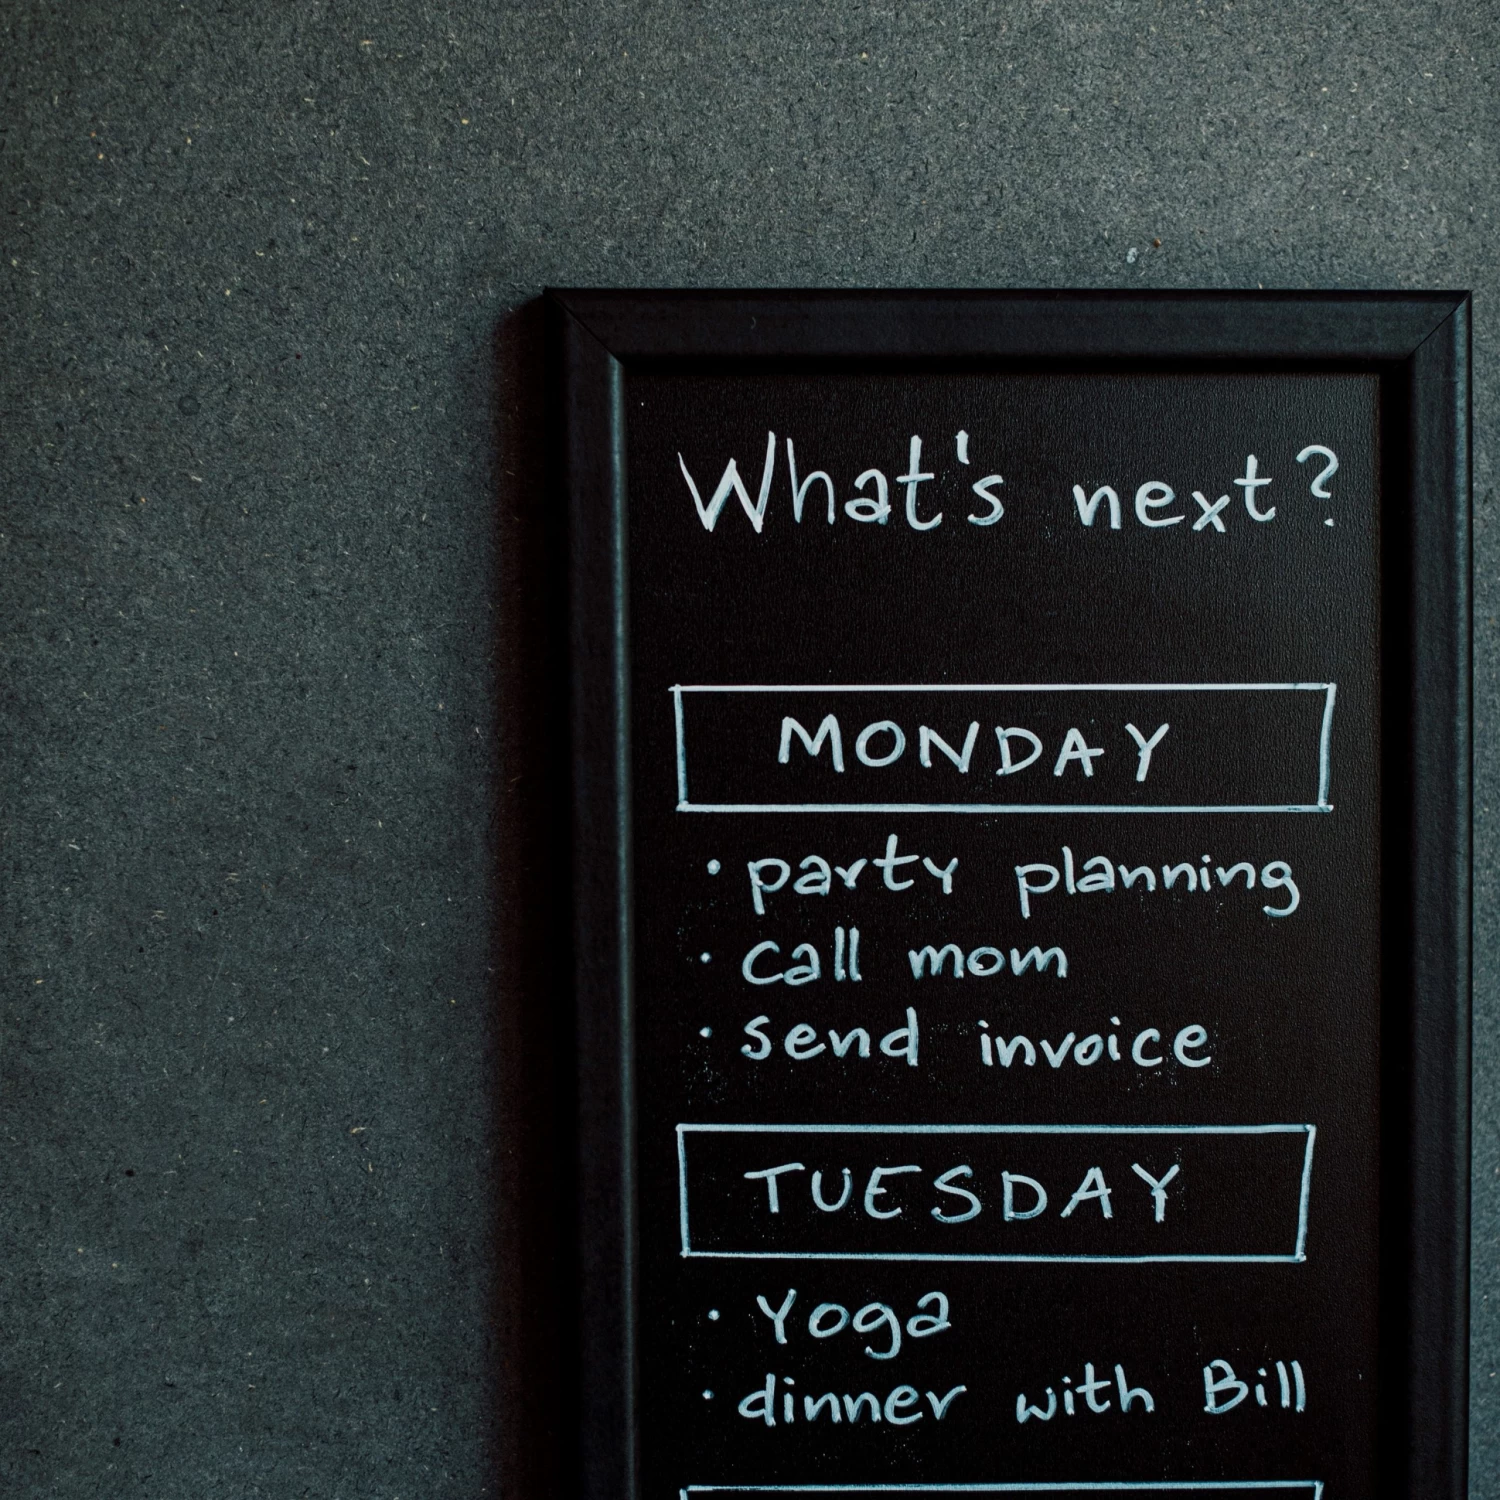 What's next?
MONDAY
· party planning
· call mom
· send invoice
TUESDAY
· Yoga
· dinner with Bill